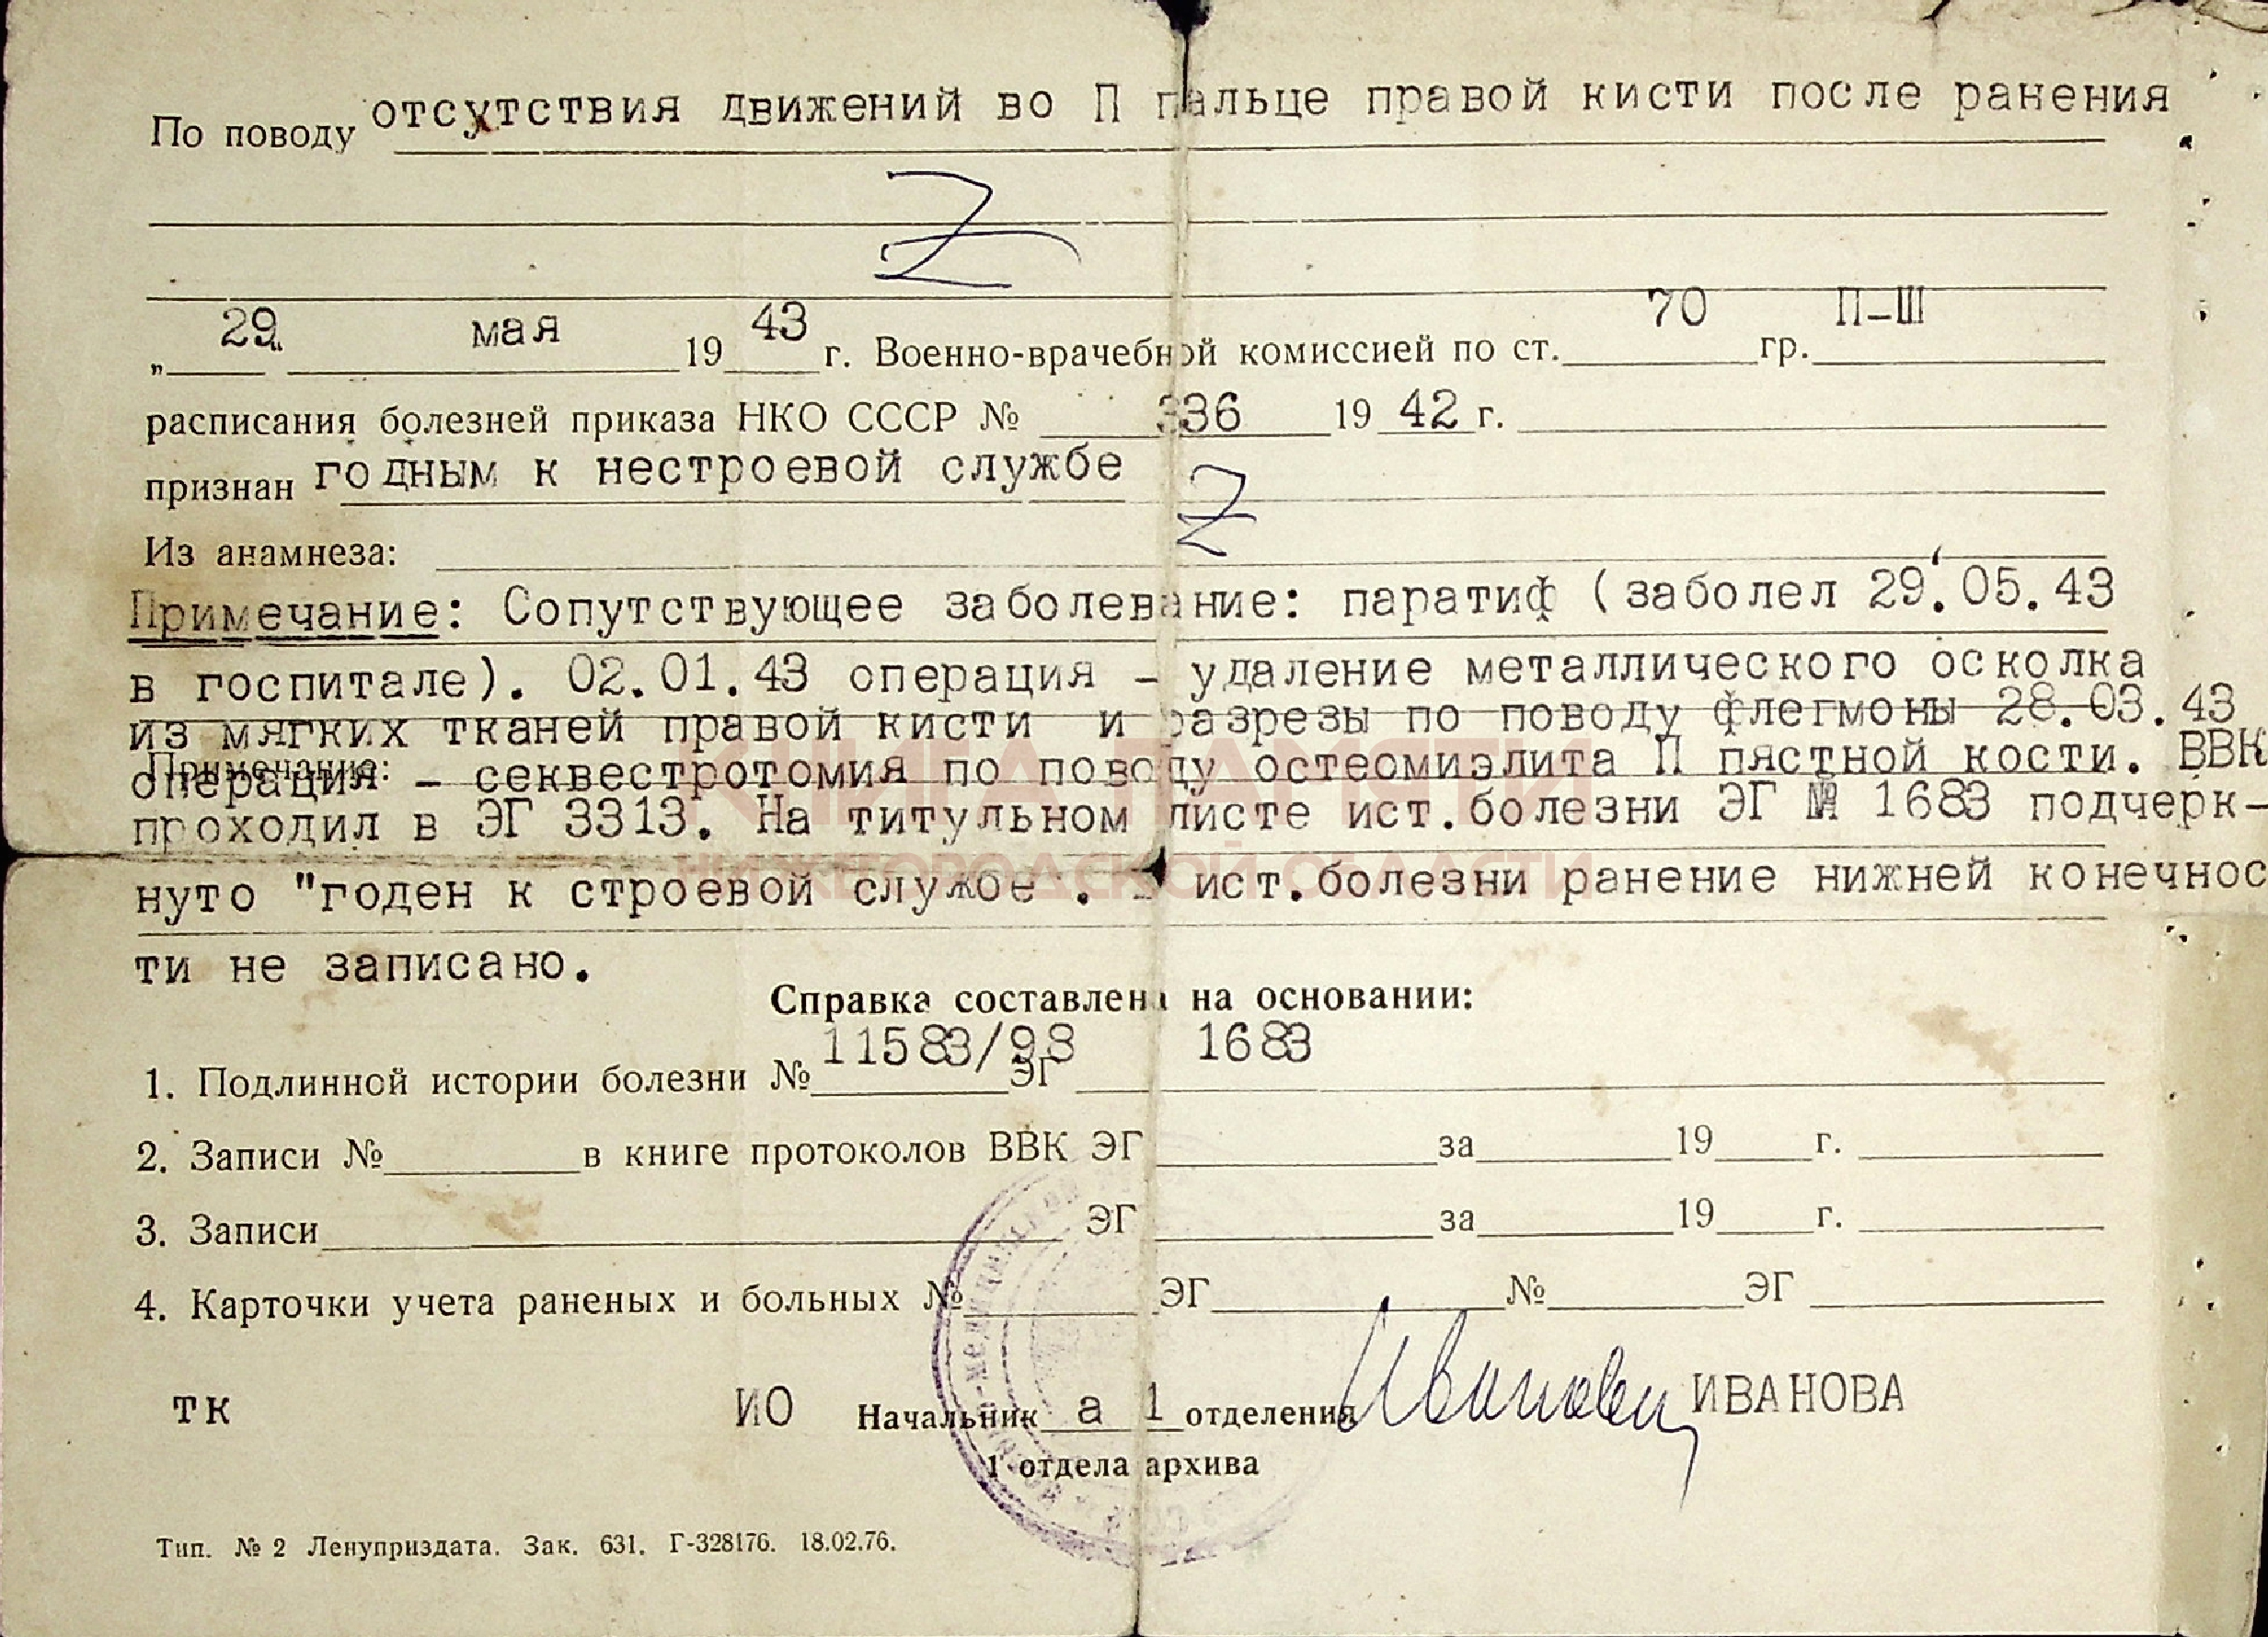 По поводу отсутствия движений во П пальце правой кисти после ранения
Z
„29“ мая 1943 г. Военно-врачебной комиссией по ст. 70 гр. П-Ш
расписания болезней приказа НКО СССР № 336 1942 г.
признан годным к нестроевой службе
Z
Из анамнеза:
Примечание: Сопутствующее заболевание: паратиф (заболел 29.05.43
в госпитале). 02.01.43 операция - удаление металлического осколка
из мягких тканей правой кисти и разрезы по поводу флегмоны 28.03.43
Примечание:
операция - секвестротомия по поводу остеомиэлита П пястной кости. ВВК
проходил в ЭГ 3313. На титульном листе ист.болезни ЭГ № 1683 подчерк-
КНИГА ПАМЯТИ
НИЖЕГОРОДСКОЙ ОБЛАСТИ
нуто "годен к строевой службе . ист.болезни ранение нижней конечнос
ти не записано.
Справка составлена на основании:
1. Подлинной истории болезни № 11583/98 ЭГ 1683
2. Записи № в книге протоколов ВВК ЭГ за 19 г.
3. Записи ЭГ за 19 г.
4. Карточки учета раненых и больных № ЭГ № ЭГ
тк ИО Начальник а 1 отделения Иванова ИВАНОВА
1 отдела архива
Тип. № 2 Ленуприздата. Зак. 631. Г-328176. 18.02.76.